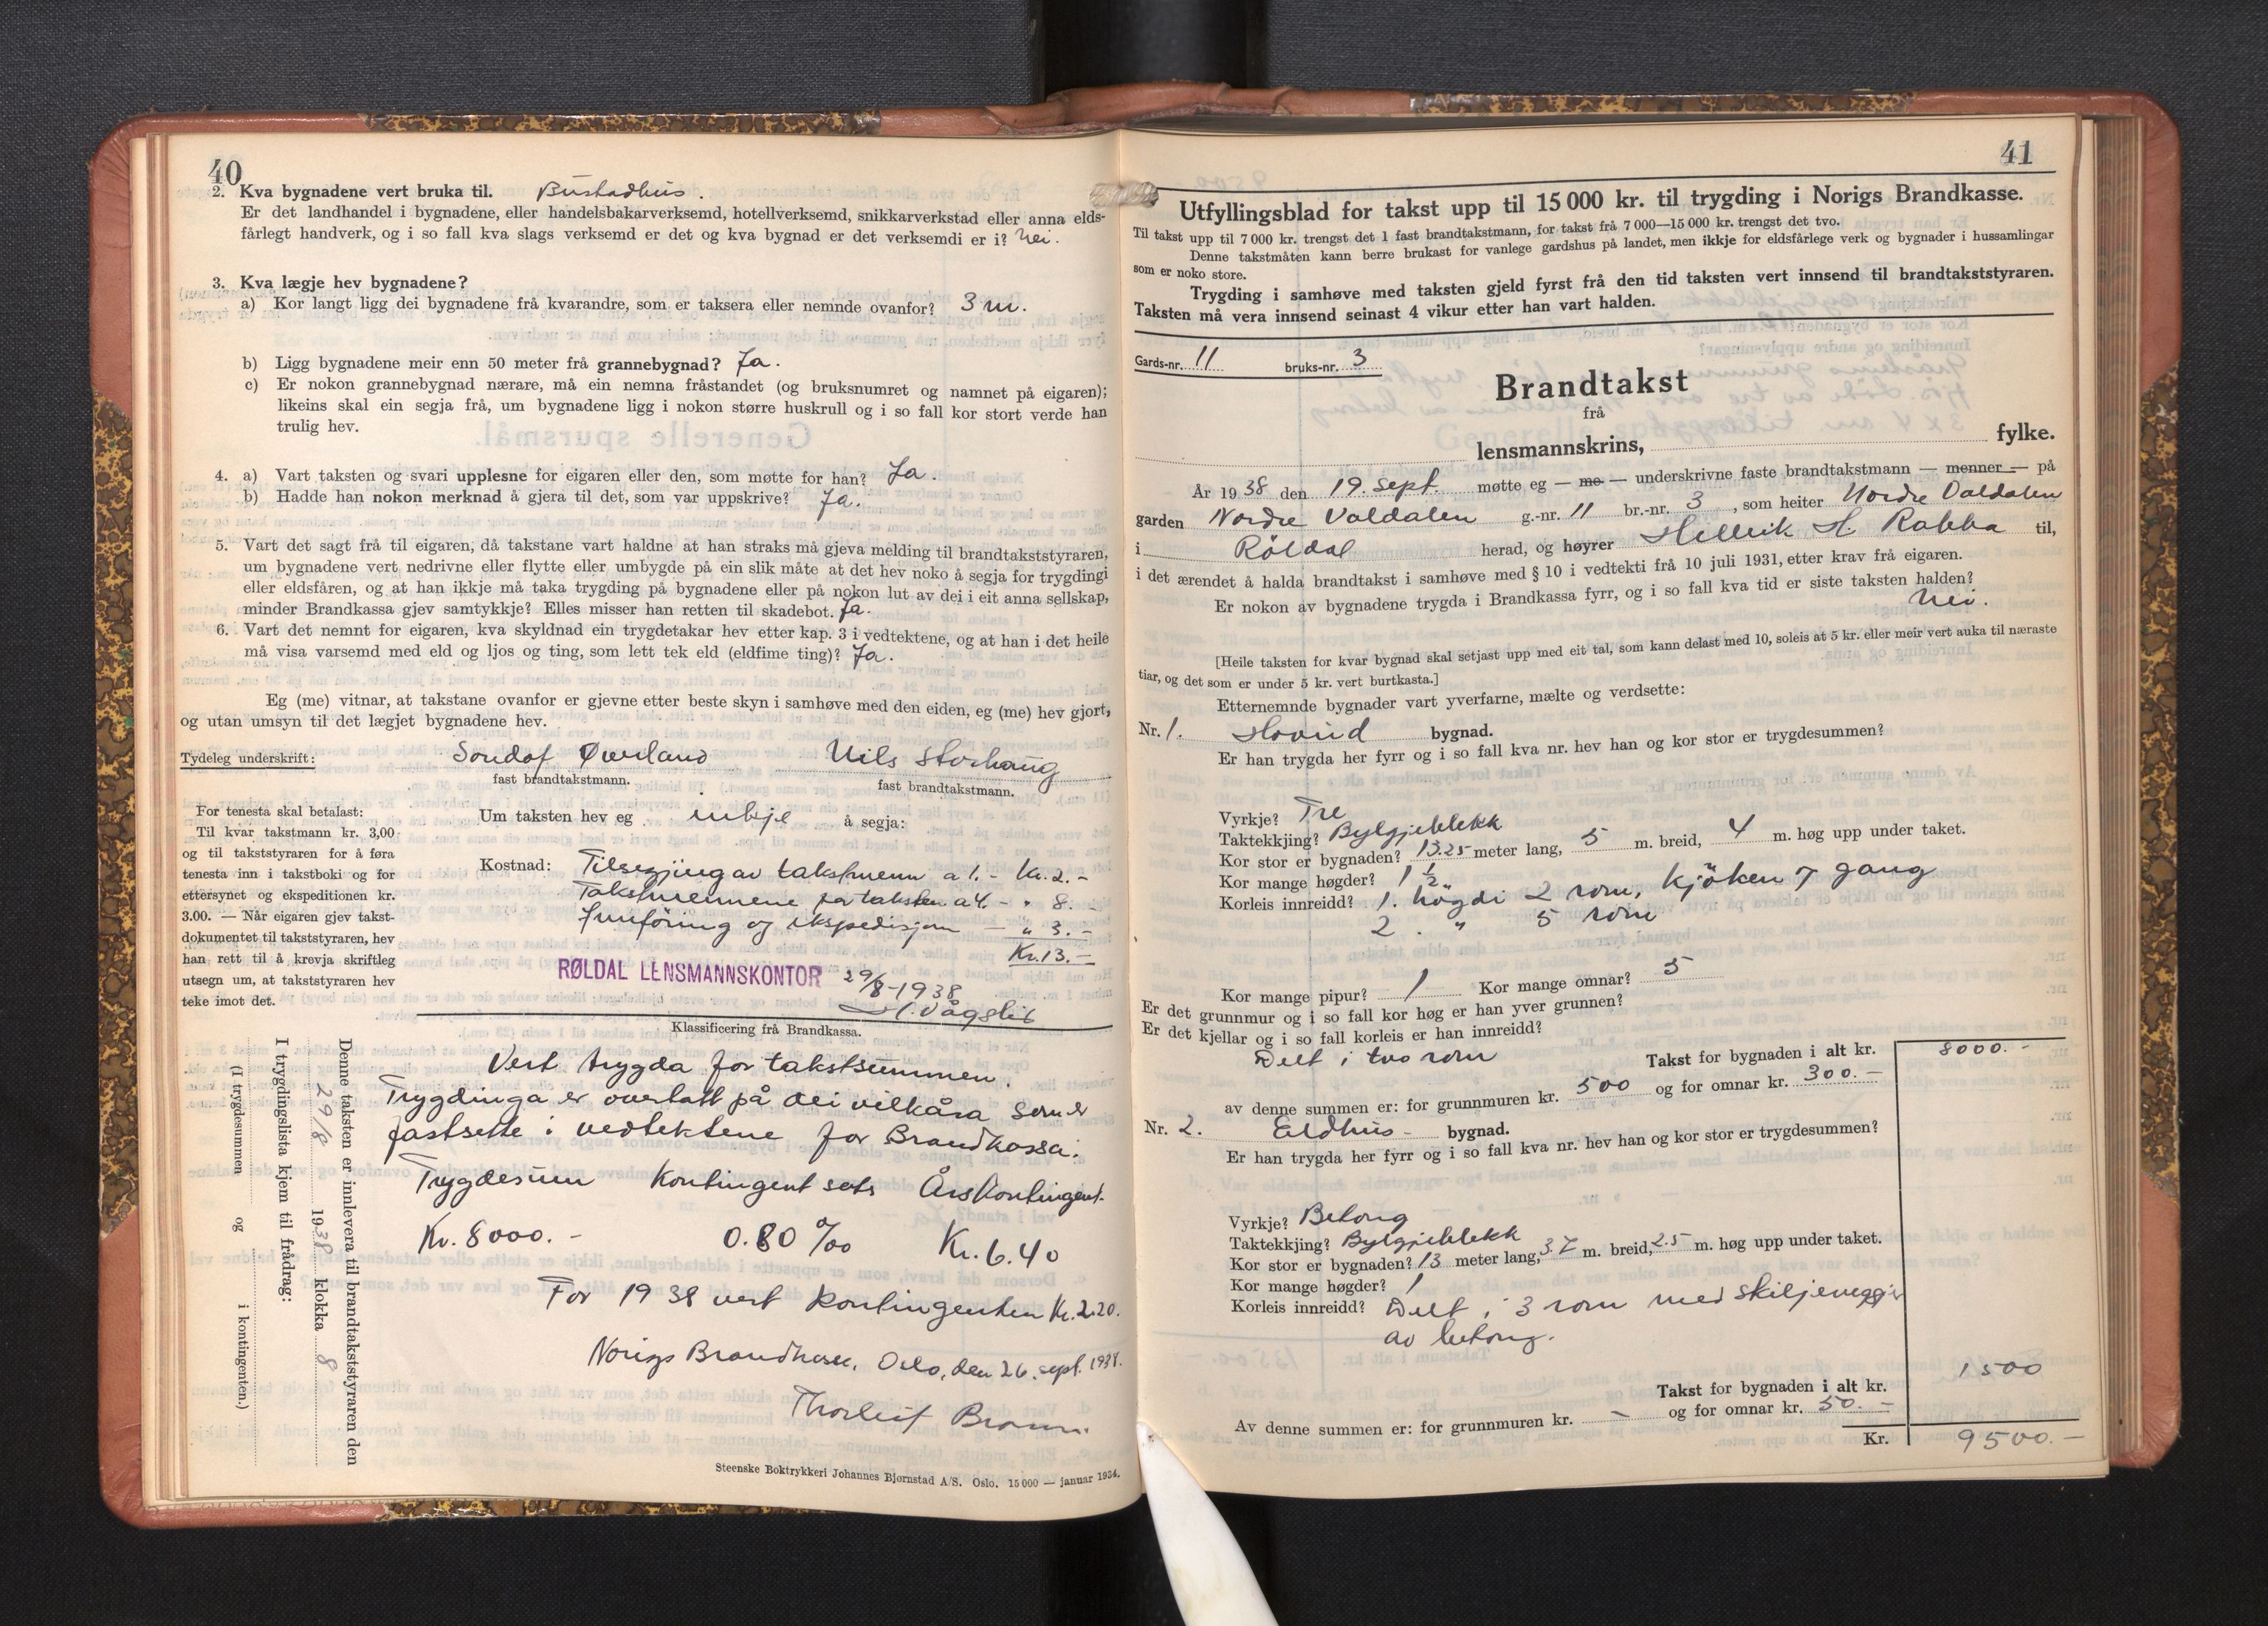 40
2. Kva bygnadene vert bruka til. Bustadhus.
Er det landhandel i bygnadene, eller handelsbakarverksemd, hotellverksemd, snikkarverkstad eller anna elds-
fårlegt handverk, og i so fall kva slags verksemd er det og kva bygnad er det verksemdi er i? Nei.
3. Kva lægje hev bygnadene?
a) Kor langt ligg dei bygnadene frå kvarandre, som er taksera eller nemnde ovanfor? 3 m.
b) Ligg bygnadene meir enn 50 meter frå grannebygnad? Ja.
c) Er nokon grannebygnad nærare, må ein nemna fråstandet (og bruksnumret og namnet på eigaren);
likeins skal ein segja frå, um bygnadene ligg i nokon større huskrull og i so fall kor stort verde han
trulig hev.
4. a) Vart taksten og svari upplesne for eigaren eller den, som møtte for han? Ja.
b) Hadde han nokon merknad å gjera til det, som var uppskrive? Ja.
5. Vart det sagt frå til eigaren, då takstane vart haldne at han straks må gjeva melding til brandtakststyraren,
um bygnadene vert nedrivne eller flytte eller umbygde på ein slik måte at det hev noko å segja for trygdingi
eller eldsfåren, og at han ikkje må taka trygding på bygnadene eller på nokon lut av dei i eit anna sellskap,
minder Brandkassa gjev samtykkje? Elles misser han retten til skadebot. Ja.
6. Vart det nemnt for eigaren, kva skyldnad ein trygdetakar hev etter kap. 3 i vedtektene, og at han i det heile
må visa varsemd med eld og ljos og ting, som lett tek eld (eldfime ting)? Ja.
Eg (me) vitnar, at takstane ovanfor er gjevne etter beste skyn i samhøve med den eiden, eg (me) hev gjort,
og utan umsyn til det lægjet bygnadene hev.
Tydeleg underskrift: Sondof Øverland Nils Storhaug
fast brandtakstmann. fast brandtakstmann.
For tenesta skal betalast:
Til kvar takstmann kr. 3,00
og til takststyraren for å føra
tenesta inn i takstboki og for
ettersynet og ekspeditionen kr.
3.00. — Når eigaren gjev takst-
dokumentet til takststyraren, hev
han rett til å krevja skriftleg
utsegn um, at takststyraren hev
teke imot det.
Um taksten hev eg inkje å segja:
Kostnad: Tilsegjing av takstmenn a 1.- Kr. 2.-
Takstmennene for taksten a 4. - " 8.
Innföring og ekspedisjon — " 3.-
Kr. 13.—
RØLDAL LENSMANNSKONTOR 29/8-1938
H. Vågslid
Klassificering frå Brandkassa.
Vert trygda for takstsummen.
Trygdinga er overlatt på dei vilkåra som er
fastsette i vedtektene for Brandkassa.
Trygdesum Kontingent sats Årskontingent.
Kr. 8000.- 0.80 ‰ Kr. 6.40
For 1938 vert kontingenten Kr. 2.20.
Norigs Brandkasse, Oslo, den 26. sept. 1938.
Thorleif
Denne taksten er innlevera til brandtakststyraren den
29/8 1938 klokka 8
I trygdingslista kjem til frådrag:
(I trygdesummen og i kontingenten.)
Steenske Boktrykkeri Johannes Bjørnstad A/S. Oslo. 15 000 — januar 1934.
41
Utfyllingsblad for takst upp til 15 000 kr. til trygding i Norigs Brandkasse.
Til takst upp til 7 000 kr. trengst det 1 fast brandtakstmann, for takst frå 7 000—15 000 kr. trengst det tvo.
Denne takstmåten kann berre brukast for vanlege gardshus på landet, men ikkje for eldsfårlege verk og bygnader i hussamlingar
som er noko store.
Trygding i samhøve med taksten gjeld fyrst frå den tid taksten vert innsend til brandtakststyraren.
Taksten må vera innsend seinast 4 vikur etter han vart halden.
Gards-nr. 11 bruks-nr. 3
Brandtakst
frå
lensmannskrins, fylke.
År 1938 den 19. sept. møtte eg — me — underskrivne faste brandtakstmann — menner — på
garden Nordre Valdalen g.-nr. 11 br.-nr. 3, som heiter Nordre Valdalen
i Röldal herad, og høyrer Hellik H. Rabba til,
i det ærendet å halda brandtakst i samhøve med § 10 i vedtekti frå 10 juli 1931, etter krav frå eigaren.
Er nokon av bygnadene trygda i Brandkassa fyrr, og i so fall kva tid er siste taksten halden?
Nei.
[Heile taksten for kvar bygnad skal setjast upp med eit tal, som kann delast med 10, soleis at 5 kr. eller meir vert auka til næraste
tiar, og det som er under 5 kr. vert burtkasta.]
Etternemnde bygnader vart yverfarne, mælte og verdsette:
Nr. 1. Hovud bygnad.
Er han trygda her fyrr og i so fall kva nr. hev han og kor stor er trygdesummen?
Vyrkje? Tre
Taktekkjing? Bylgjeblekk
Kor stor er bygnaden? 13.25 meter lang, 5 m. breid, 4 m. høg upp under taket.
Kor mange høgder? 1 1/2
Korleis innreidd? 1. högdi 2 rom, kjöken & gang
2. " 5 rom
Kor mange pipur? 1 Kor mange omnar? 5
Er det grunnmur og i so fall kor høg er han yver grunnen?
Er det kjellar og i so fall korleis er han innreidd?
Delt i tvo rom
Takst for bygnaden i alt kr. 8000.-
av denne summen er: for grunnmuren kr. 500 og for omnar kr. 300.—
Nr. 2. Eldhus- bygnad.
Er han trygda her fyrr og i so fall kva nr. hev han og kor stor er trygdesummen?
Vyrkje? Betong
Taktekkjing? Bylgjeblekk
Kor stor er bygnaden? 13 meter lang, 3.7 m. breid, 2.5 m. høg upp under taket.
Kor mange høgder? 1
Korleis innreidd? Delt i 3 rom med skiljevegger
av betong.
Takst for bygnaden i alt kr. 1500
Av denne summen er: for grunnmuren kr. - og for omnar kr. 50.—
Kr. 9500.—